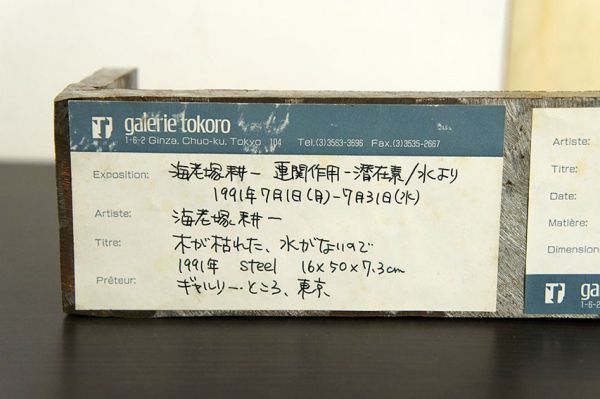 galerie tokoro
1-6-2 Ginza, Chuo-ku, Tokyo 104 Tel.(3)3563-3696 Fax.(3)3535-2667
Exposition: 海老塚耕一 連関作用-潜在景/水より
1991年7月1日(月)-7月31日(水)
Artiste: 海老塚耕一
Titre: 木が枯れた、水がないので
1991年 steel 16×50×7.3cm
Prêteur: ギャルリー・ところ、東京
Artiste:
Titre:
Date:
Matière:
Dimension
ga
1-6-2